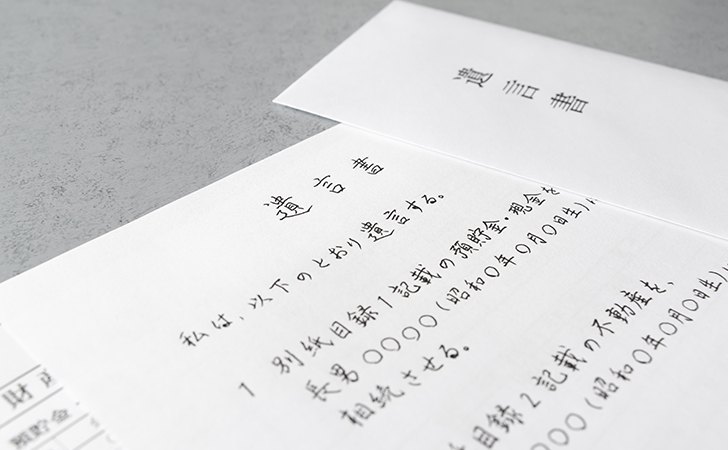 遺言書
遺言書
私は、以下のとおり遺言する。
1 別紙目録1記載の預貯金・現金を
長男〇〇〇〇(昭和〇年〇月〇日生)に
相続させる。
目録2記載の不動産を、
〇〇〇(昭和〇年〇月〇日生)
財
預貯金